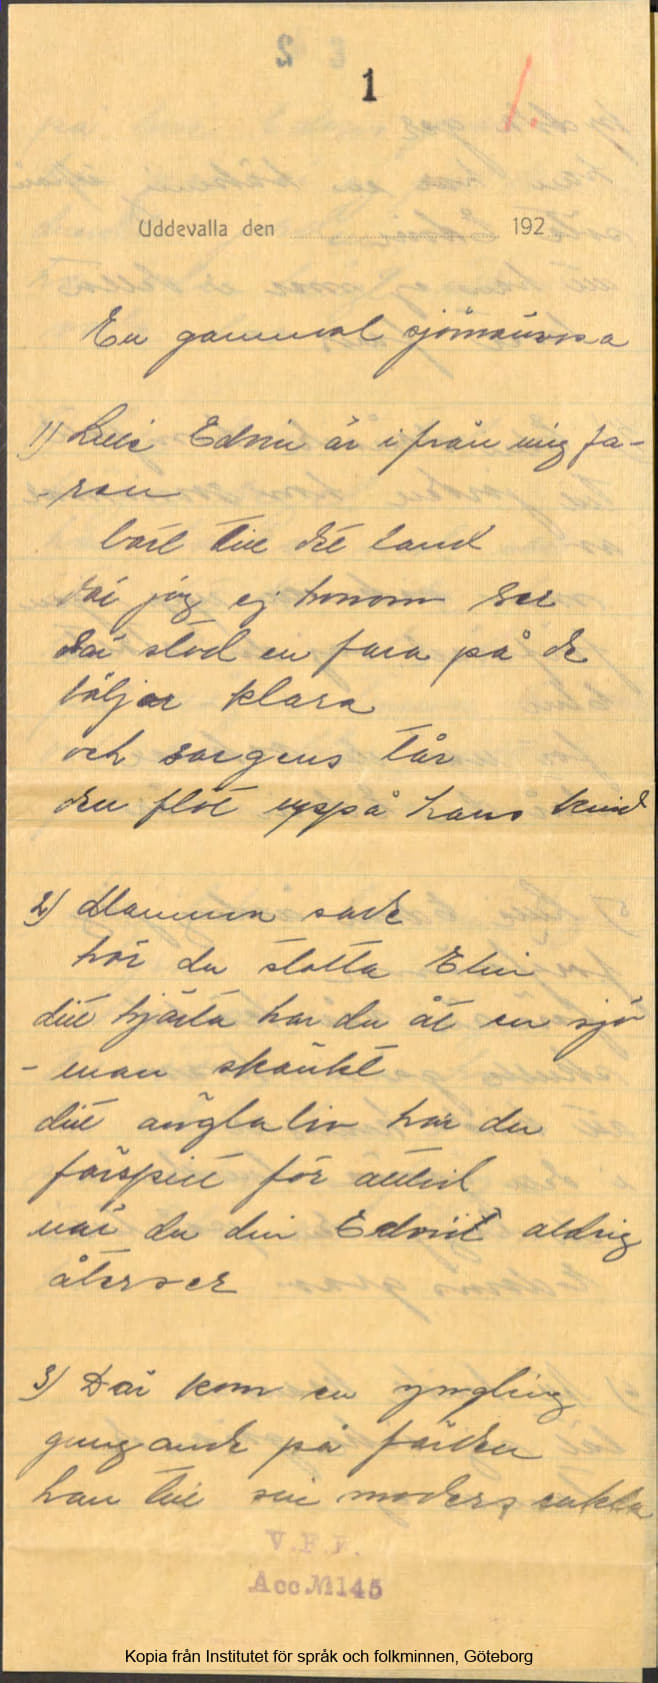 1
Uddevalla den 192
En gammal sjömansvisa
1) Lille Edvin är ifrån mig fa-
-ren
bort till det land
där jag ej honom ser
där stod en fara på de
böljor klara
och sorgens tår
den flöt uppå hans kind
2) Mamma sade
hör du stolta Elin
ditt hjärta har du åt en sjö
-man skänkt
ditt änglaliv har du
förspillt för alltid
när du din Edvin aldrig
återser
3) Där kom en yngling
gungande på fjärden
han till sin moders enkla
V.F.F.
Acc.№145
Kopia från Institutet för språk och folkminnen, Göteborg